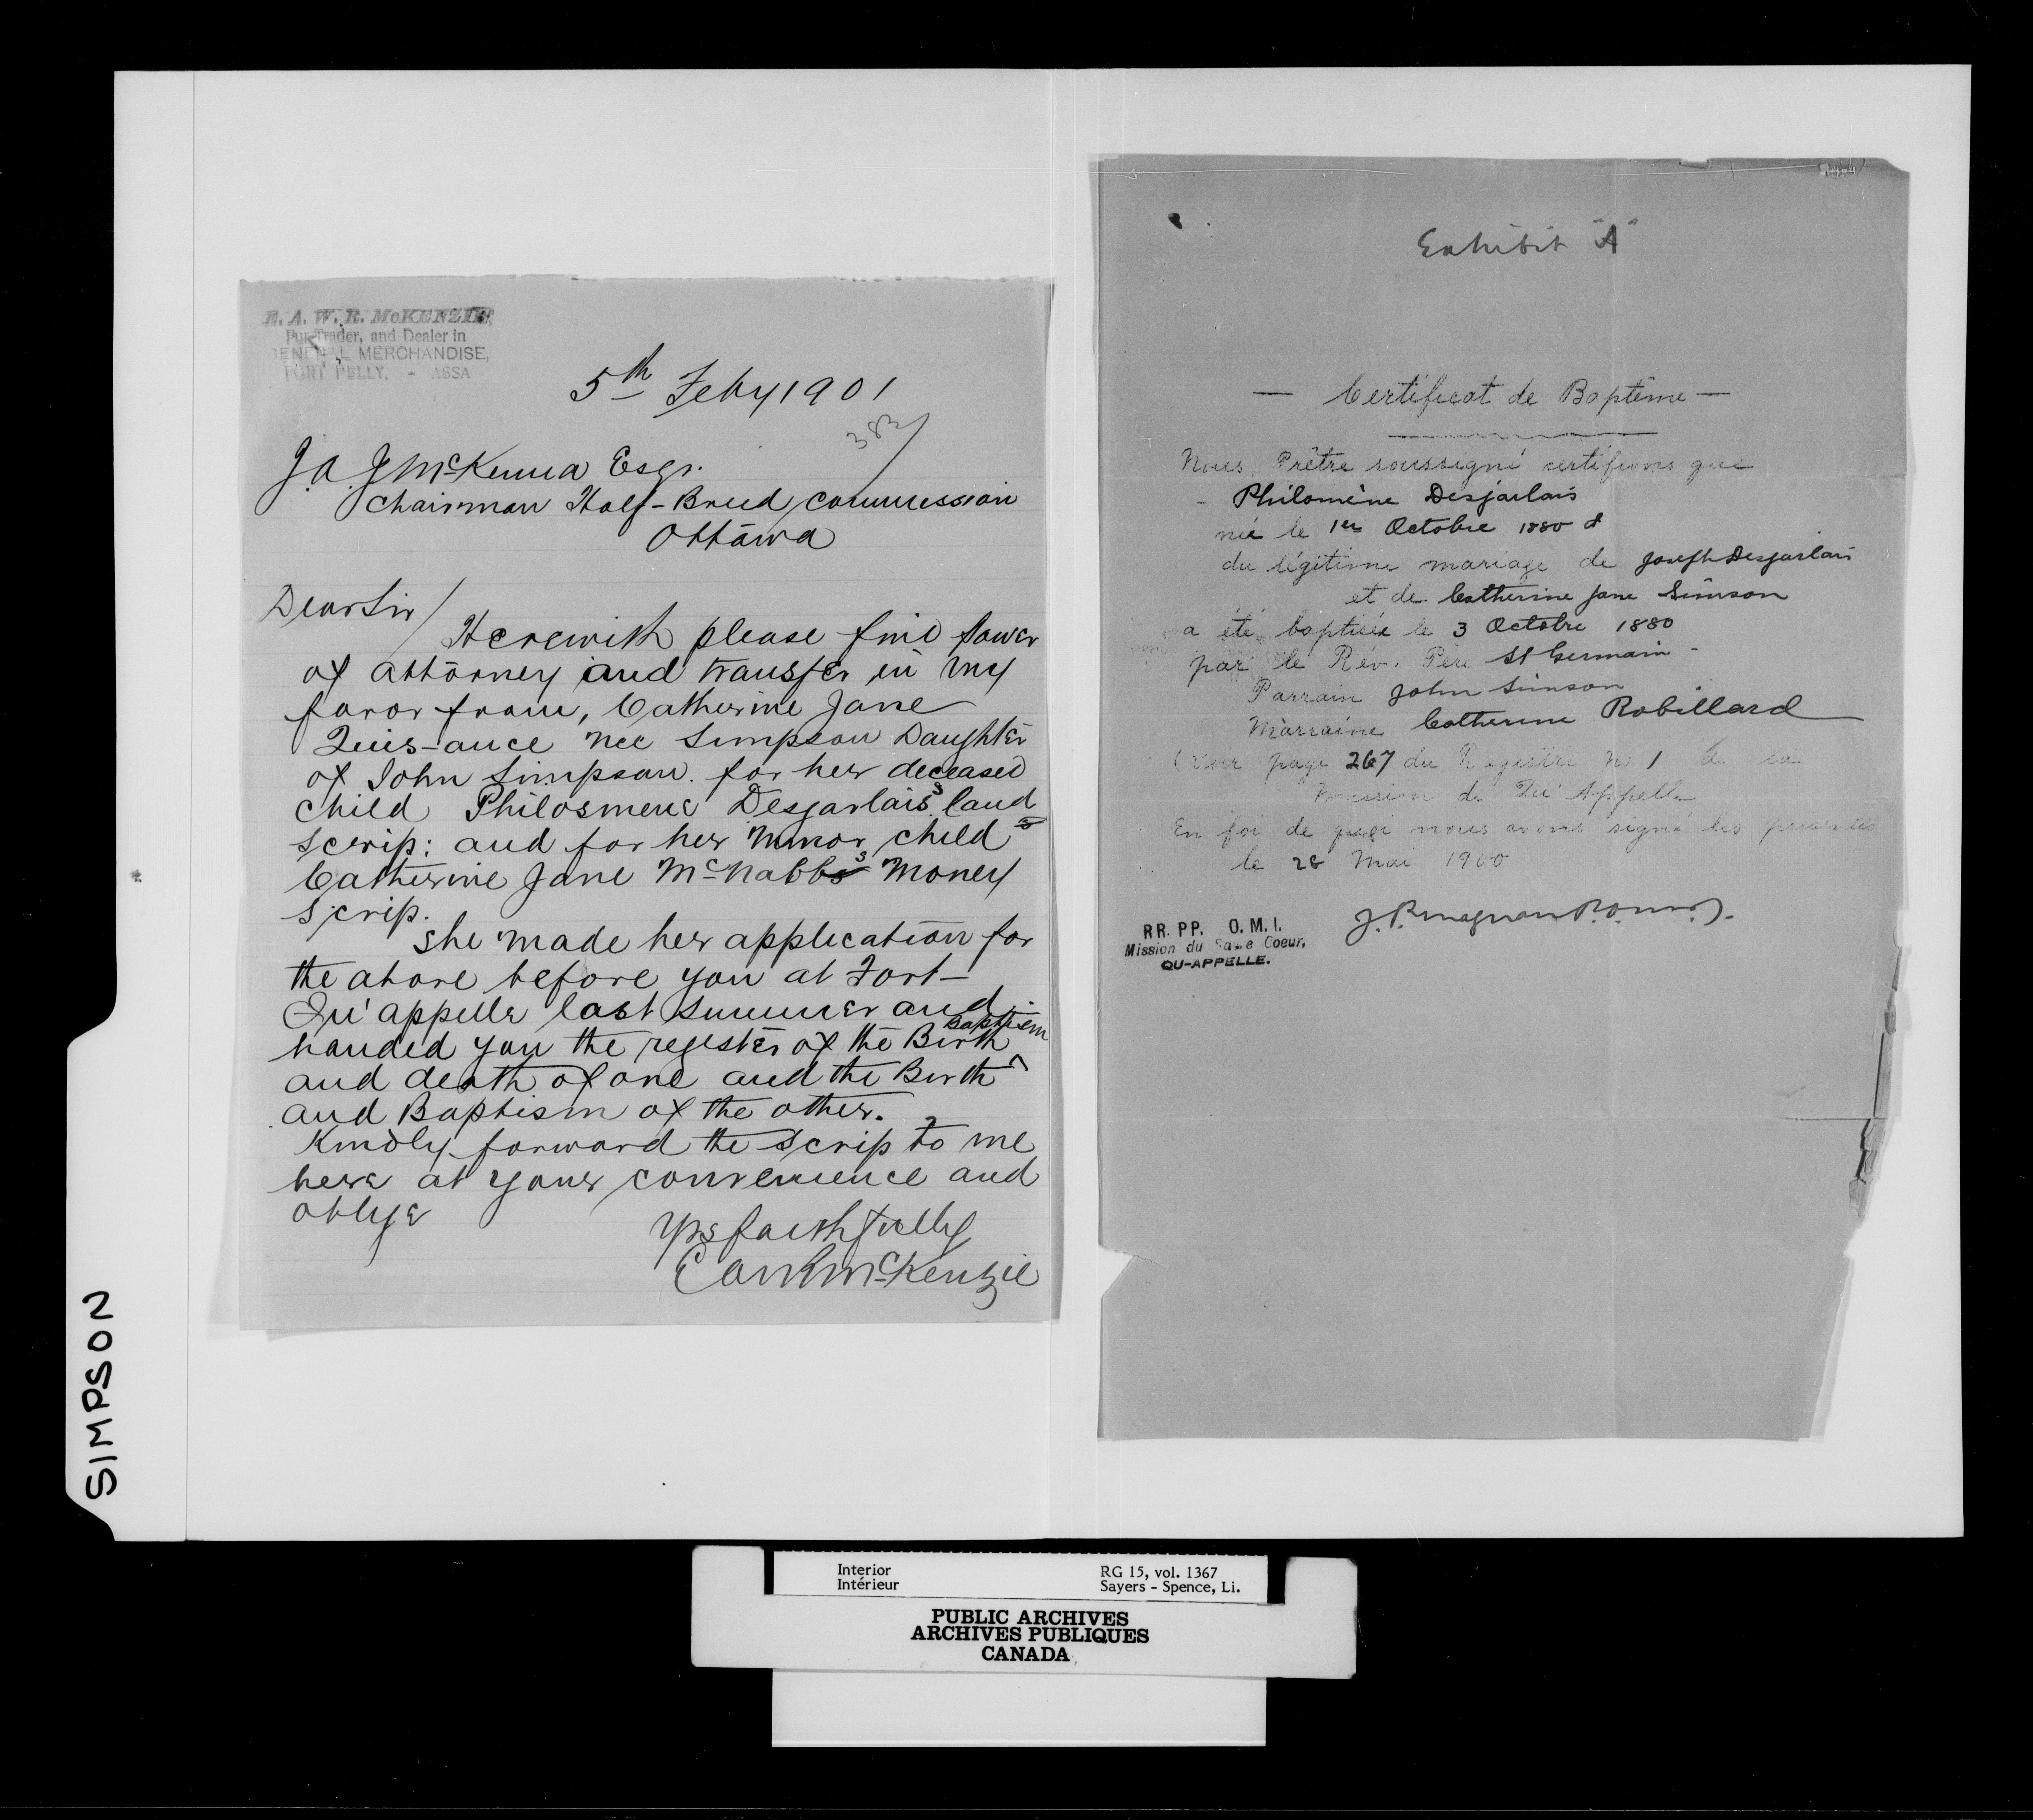 E. A. W. R. McKENZIE,
Fur Trader, and Dealer in
GENERAL MERCHANDISE,
FORT PELLY, - ASSA
5th Feby 1901
383
J. A. J. McKenna Esqr.
Chairman Half-Breed Commission
Ottawa
Dear Sir/
Herewith please find Power
of attorney and transfer in my
favor from, Catherine Jane
nee Simpson Daughter
of John Simpson. for her deceased
child Philosmene Desjarlais's land
scrip: and for her minor child's
Catherine Jane McNabb's Money
Scrip.
She made her application for
the above before you at Fort-
Qu'appelle last summer and
handed you the register of the Birth Baptism
and death of one and the Birth
and Baptism of the other.
Kindly forward the Scrip to me
here at your convenience and
oblige
Yrs faithfully
EAWR McKenzie
Exhibit "A"
— Certificat de Baptême —
Nous, Prêtre soussigné certifions que
- Philomène Desjarlais
née le 1er Octobre 1880 &
du légitime mariage de Joseph Desjarlais
et de Catherine Jane Simson
a été baptisée le 3 Octobre 1880
par le Rév. Père St Germain -
Parrain John Simson
Marraine Catherine Robillard
(voir page 267 du Registre No 1 de la
Mission de Qu'Appelle
En foi de quoi nous avons signé les présentes
le 28 Mai 1900
J. P. Magnan P. O.M.I.
RR. PP. O. M. I.
Mission du Sacre Coeur,
QU-APPELLE.
SIMPSON
Interior
Intérieur
RG 15, vol. 1367
Sayers - Spence, Li.
PUBLIC ARCHIVES
ARCHIVES PUBLIQUES
CANADA